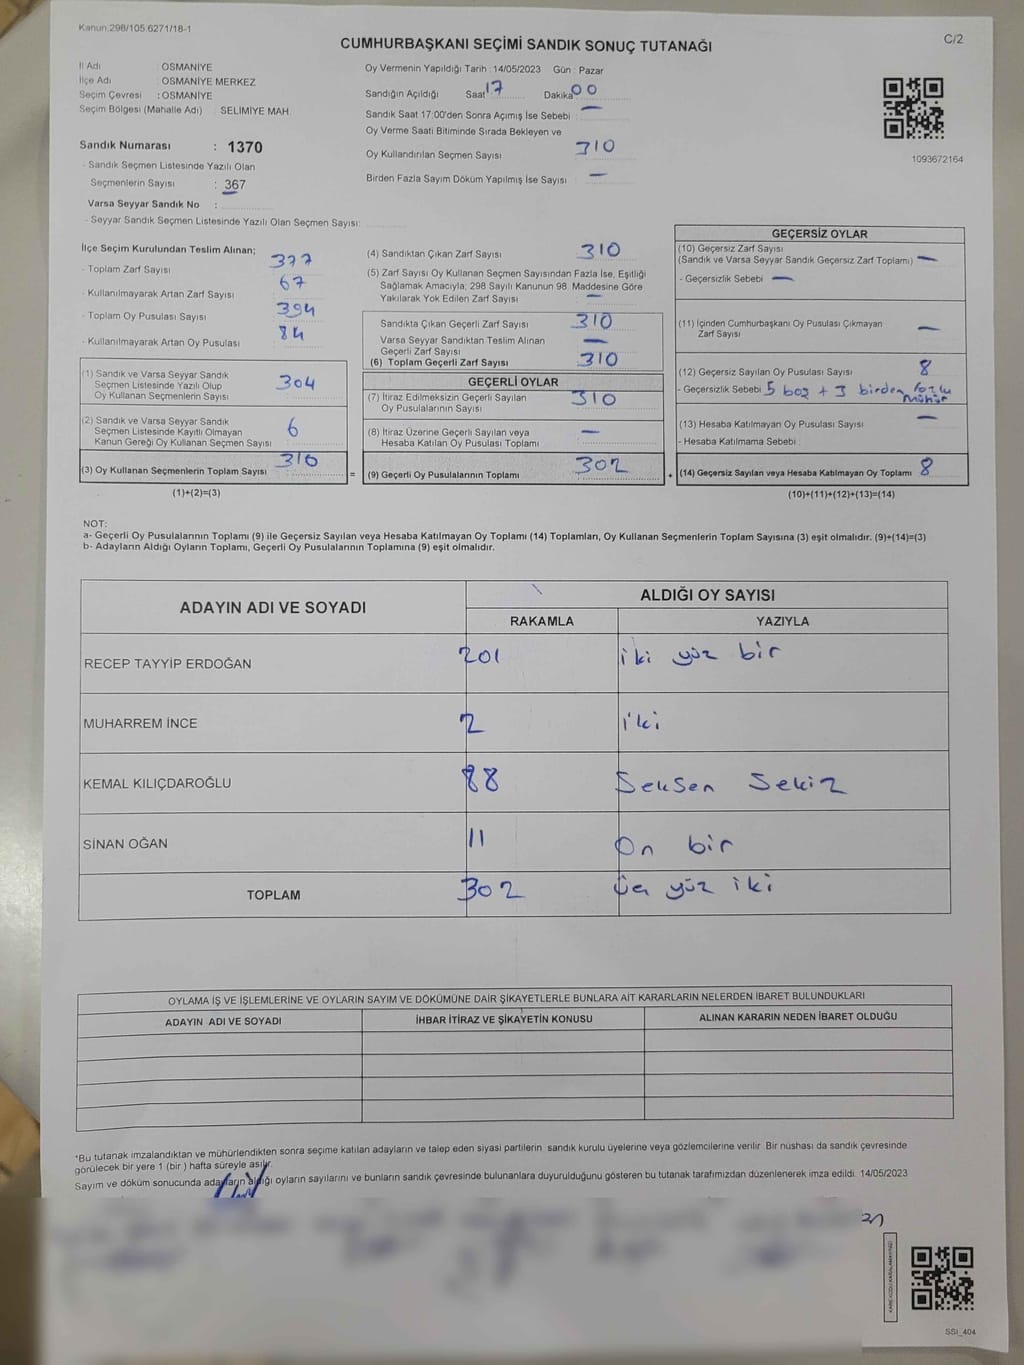 Kanun.298/105.6271/18-1
C/2
CUMHURBAŞKANI SEÇİMİ SANDIK SONUÇ TUTANAĞI
İl Adı : OSMANİYE
İlçe Adı : OSMANİYE MERKEZ
Seçim Çevresi : OSMANİYE
Seçim Bölgesi (Mahalle Adı) : SELİMİYE MAH.
Sandık Numarası : 1370
- Sandık Seçmen Listesinde Yazılı Olan
Seçmenlerin Sayısı : 367
Varsa Seyyar Sandık No :
- Seyyar Sandık Seçmen Listesinde Yazılı Olan Seçmen Sayısı:
Oy Vermenin Yapıldığı Tarih : 14/05/2023 Gün : Pazar
Sandığın Açıldığı Saat 17 Dakika 00
Sandık Saat 17:00'den Sonra Açımış İse Sebebi : —
Oy Verme Saati Bitiminde Sırada Bekleyen ve
Oy Kullandırılan Seçmen Sayısı 310
Birden Fazla Sayım Döküm Yapılmış İse Sayısı : —
1093672164
İlçe Seçim Kurulundan Teslim Alınan;
- Toplam Zarf Sayısı 377
- Kullanılmayarak Artan Zarf Sayısı 67
- Toplam Oy Pusulası Sayısı 394
- Kullanılmayarak Artan Oy Pusulası 84
(1) Sandık ve Varsa Seyyar Sandık
Seçmen Listesinde Yazılı Olup
Oy Kullanan Seçmenlerin Sayısı 304
(2) Sandık ve Varsa Seyyar Sandık
Seçmen Listesinde Kayıtlı Olmayan
Kanun Gereği Oy Kullanan Seçmen Sayısı 6
(3) Oy Kullanan Seçmenlerin Toplam Sayısı 310
(1)+(2)=(3)
=
(4) Sandıktan Çıkan Zarf Sayısı 310
(5) Zarf Sayısı Oy Kullanan Seçmen Sayısından Fazla İse, Eşitliği
Sağlamak Amacıyla; 298 Sayılı Kanunun 98. Maddesine Göre
Yakılarak Yok Edilen Zarf Sayısı —
Sandıkta Çıkan Geçerli Zarf Sayısı 310
Varsa Seyyar Sandıktan Teslim Alınan
Geçerli Zarf Sayısı —
(6) Toplam Geçerli Zarf Sayısı 310
GEÇERLİ OYLAR
(7) İtiraz Edilmeksizin Geçerli Sayılan
Oy Pusulalarının Sayısı 310
(8) İtiraz Üzerine Geçerli Sayılan veya
Hesaba Katılan Oy Pusulası Toplamı —
(9) Geçerli Oy Pusulalarının Toplamı 302
+
GEÇERSİZ OYLAR
(10) Geçersiz Zarf Sayısı
(Sandık ve Varsa Seyyar Sandık Geçersiz Zarf Toplamı) —
- Geçersizlik Sebebi : —
(11) İçinden Cumhurbaşkanı Oy Pusulası Çıkmayan
Zarf Sayısı —
(12) Geçersiz Sayılan Oy Pusulası Sayısı 8
- Geçersizlik Sebebi : 5 boş + 3 birden fazla
mühür
(13) Hesaba Katılmayan Oy Pusulası Sayısı —
- Hesaba Katılmama Sebebi :
(14) Geçersiz Sayılan veya Hesaba Katılmayan Oy Toplamı 8
(10)+(11)+(12)+(13)=(14)
NOT:
a- Geçerli Oy Pusulalarının Toplamı (9) ile Geçersiz Sayılan veya Hesaba Katılmayan Oy Toplamı (14) Toplamları, Oy Kullanan Seçmenlerin Toplam Sayısına (3) eşit olmalıdır. (9)+(14)=(3)
b- Adayların Aldığı Oyların Toplamı, Geçerli Oy Pusulalarının Toplamına (9) eşit olmalıdır.
ADAYIN ADI VE SOYADI
ALDIĞI OY SAYISI
RAKAMLA YAZIYLA
RECEP TAYYİP ERDOĞAN 201 iki yüz bir
MUHARREM İNCE 2 iki
KEMAL KILIÇDAROĞLU 88 Seksen Sekiz
SİNAN OĞAN 11 On bir
TOPLAM 302 üç yüz iki
OYLAMA İŞ VE İŞLEMLERİNE VE OYLARIN SAYIM VE DÖKÜMÜNE DAİR ŞİKAYETLERLE BUNLARA AİT KARARLARIN NELERDEN İBARET BULUNDUKLARI
ADAYIN ADI VE SOYADI İHBAR İTİRAZ VE ŞİKAYETİN KONUSU ALINAN KARARIN NEDEN İBARET OLDUĞU
*Bu tutanak imzalandıktan ve mühürlendikten sonra seçime katılan adayların ve talep eden siyasi partilerin sandık kurulu üyelerine veya gözlemcilerine verilir. Bir nüshası da sandık çevresinde
görülecek bir yere 1 (bir) hafta süreyle asılır.
Sayım ve döküm sonucunda adayların aldığı oyların sayılarını ve bunların sandık çevresinde bulunanlara duyurulduğunu gösteren bu tutanak tarafımızdan düzenlenerek imza edildi. 14/05/2023
SSI_404